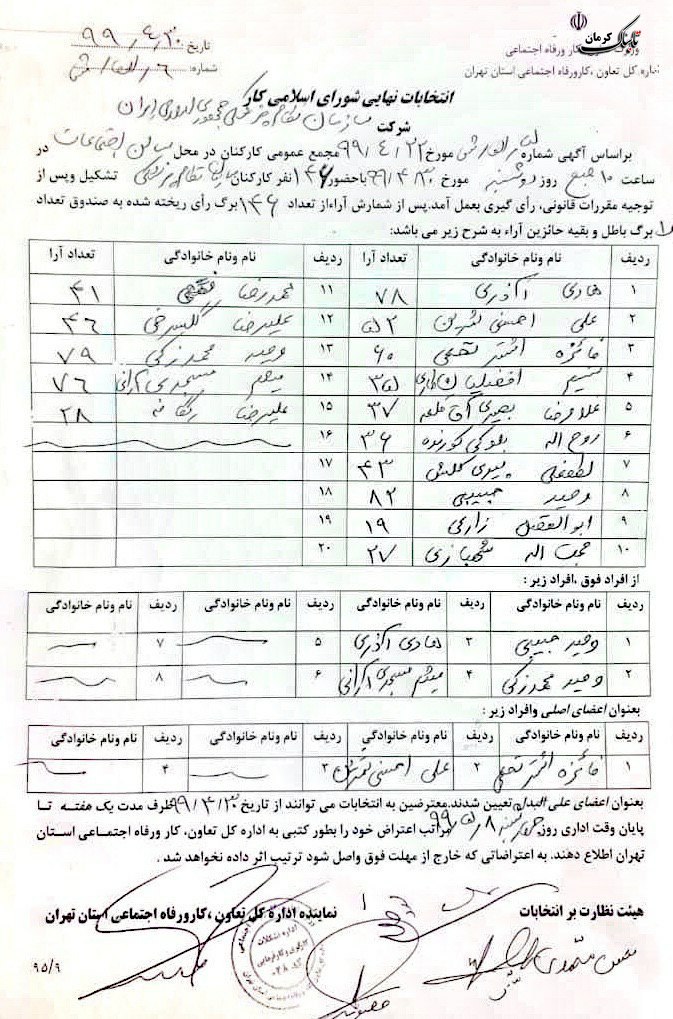 تابناک کرمان
تاریخ: ۹۹/۴/۳۰
شماره:
کار ورفاه اجتماعی
اداره کل تعاون ،کارورفاه اجتماعی استان تهران
انتخابات نهایی شورای اسلامی کار
شرکت سازمان نظام پزشکی جمهوری اسلامی ایران
براساس آگهی شماره مورخ ۹۹/۴/۲۲ مجمع عمومی کارکنان در محل سالن اجتماعات در
ساعت ۱۰ صبح روز دوشنبه مورخ ۹۹/۴/۳۰ باحضور ۱۴۶ نفر کارکنان سازمان نظام پزشکی تشکیل وپس از
توجیه مقررات قانونی، رأی گیری بعمل آمد.پس از شمارش آراءاز تعداد ۱۴۶ برگ رأی ریخته شده به صندوق تعداد
برگ باطل و بقیه حائزین آراء به شرح زیر می باشد:
ردیف نام ونام خانوادگی تعداد آرا ردیف نام ونام خانوادگی تعداد آرا
۱ هادی آذری ۷۸ ۱۱ محمدرضا ۴۱
۲ علی ۵۲ ۱۲ علیرضا گلسرخی ۴۶
۳ فائزه ۶۰ ۱۳ وحید محمدزکی ۷۹
۴ نسیم ۳۵ ۱۴ میثم مسجدی آرانی ۷۶
۵ غلامرضا ۳۷ ۱۵ علیرضا ۲۸
۶ روح اله ۳۶ ۱۶
۷ لطفعلی ۴۳ ۱۷
۸ وحید حبیبی ۸۲ ۱۸
۹ ابوالفضل زارعی ۱۹ ۱۹
۱۰ حجت اله شهبازی ۲۷ ۲۰
از افراد فوق ،افراد زیر :
ردیف نام ونام خانوادگی ردیف نام ونام خانوادگی ردیف نام ونام خانوادگی ردیف نام ونام خانوادگی
۱ وحید حبیبی ۳ هادی آذری ۵ ۷
۲ وحید محمدزکی ۴ میثم مسجدی آرانی ۶ ۸
بعنوان اعضای اصلی وافراد زیر :
ردیف نام ونام خانوادگی ردیف نام ونام خانوادگی ردیف نام ونام خانوادگی ردیف نام ونام خانوادگی
۱ فائزه ۲ علی ۳ ۴
بعنوان اعضای علی البدل تعیین شدند.معترضین به انتخابات می توانند از تاریخ ۹۹/۴/۳۰ ظرف مدت یک هفته تا
پایان وقت اداری روز ۹۹/۵/۸ مراتب اعتراض خود را بطور کتبی به اداره کل تعاون، کار ورفاه اجتمـاعی اسـتان
تهران اطلاع دهند. به اعتراضاتی که خارج از مهلت فوق واصل شود ترتیب اثر داده نخواهد شد .
هیئت نظارت بر انتخابات
نماینده اداره کل تعاون ،کارورفاه اجتماعی استان تهران
۹۵/۹